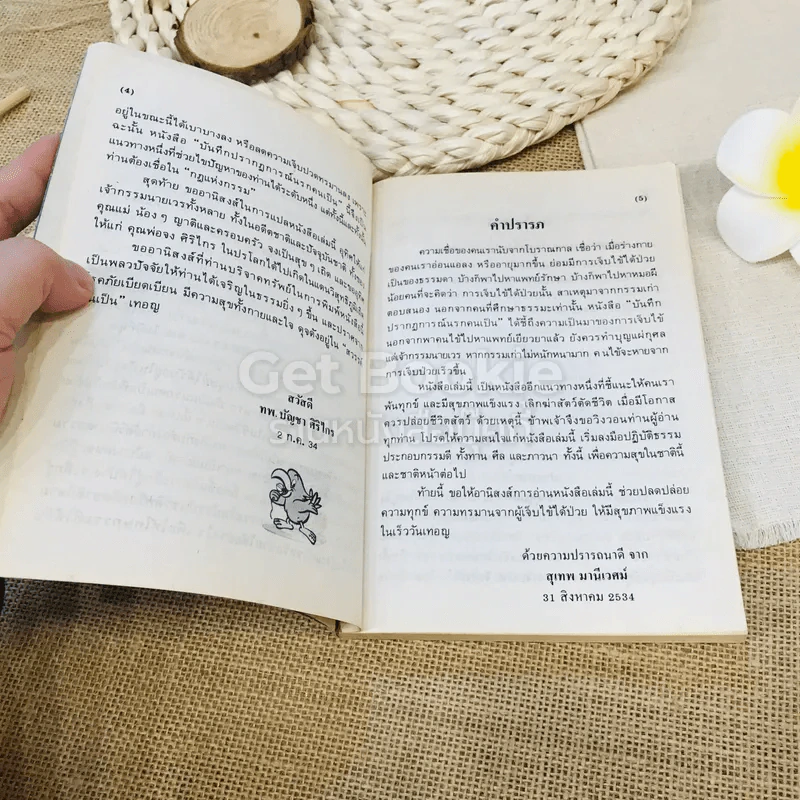 (4)
อยู่ในขณะนี้ได้เบาบางลง หรือลดความเจ็บปวดทรมานลง
ฉะนั้น หนังสือ "บันทึกปรากฏการณ์นรกคนเป็น" นี้จึงเป็น
แนวทางหนึ่งที่ช่วยไขปัญหาของท่านได้ระดับหนึ่ง แต่ทั้งนี้และทั้งนั้น
ท่านต้องเชื่อใน "กฏแห่งกรรม"
สุดท้าย ขออานิสงส์ในการแปลหนังสือเล่มนี้ อุทิศให้แก่
เจ้ากรรมนายเวรทั้งหลาย ทั้งในอดีตชาติและปัจจุบันชาติ
คุณแม่ น้องๆ ญาติและครอบครัว จงเป็นสุขๆ เถิด และขออุทิศ
ให้แก่ คุณพ่อจง ศิริไกร ในปรโลกได้ไปเกิดในแดนวิสุทธิภูมิ
ขออานิสงส์ที่ท่านบริจาคทรัพย์ในการพิมพ์หนังสือเล่มนี้
เป็นพลวปัจจัยให้ท่านได้เจริญในธรรมยิ่งๆ ขึ้น และปราศจาก
ภัยเบียดเบียน มีความสุขทั้งกายและใจ ดุจดังอยู่ใน "สวรรค์
คนเป็น" เทอญ
สวัสดี
ทพ.บัญชา ศิริไกร
2 ก.ค. 34
(5)
คำปรารภ
ความเชื่อของคนเรานับจากโบราณกาล เชื่อว่า เมื่อร่างกาย
ของคนเราอ่อนแอลง หรืออายุมากขึ้น ย่อมมีการเจ็บไข้ได้ป่วย
เป็นของธรรมดา บ้างก็พาไปหาแพทย์รักษา บ้างก็พาไปหาหมอผี
น้อยคนที่จะคิดว่า การเจ็บไข้ได้ป่วยนั้น สาเหตุมาจากกรรมเก่า
ตอบสนอง นอกจากคนที่ศึกษาธรรมะเท่านั้น หนังสือ "บันทึก
ปรากฏการณ์นรกคนเป็น" ได้ชี้ถึงความเป็นมาของการเจ็บไข้
นอกจากพาคนไข้ไปหาแพทย์เยียวยาแล้ว ยังควรทำบุญแผ่กุศล
แด่เจ้ากรรมนายเวร หากกรรมเก่าไม่หนักหนามาก คนไข้จะหายจาก
การเจ็บป่วยเร็วขึ้น
หนังสือเล่มนี้ เป็นหนังสืออีกแนวทางหนึ่งที่ชี้แนะให้คนเรา
พ้นทุกข์ และมีสุขภาพแข็งแรง เลิกฆ่าสัตว์ตัดชีวิต เมื่อมีโอกาส
ควรปล่อยชีวิตสัตว์ ด้วยเหตุนี้ ข้าพเจ้าจึงขอวิงวอนท่านผู้อ่าน
ทุกท่าน โปรดให้ความสนใจแก่หนังสือเล่มนี้ เริ่มลงมือปฏิบัติธรรม
ประกอบกรรมดี ทั้งทาน ศีล และภาวนา ทั้งนี้ เพื่อความสุขในชาตินี้
และชาติหน้าต่อไป
ท้ายนี้ ขอให้อานิสงส์การอ่านหนังสือเล่มนี้ ช่วยปลดปล่อย
ความทุกข์ ความทรมานจากผู้เจ็บไข้ได้ป่วย ให้มีสุขภาพแข็งแรง
ในเร็ววันเทอญ
ด้วยความปรารถนาดี จาก
สุเทพ มานีเวศม์
31 สิงหาคม 2534
Get Bookie